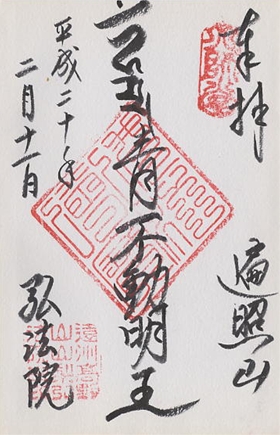 奉拝
遍照山
青不動明王
平成二十年
二月十一日
弘法院